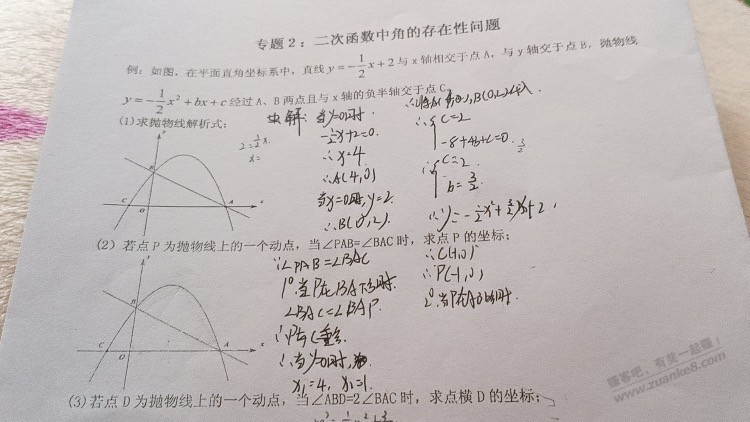 专题2：二次函数中角的存在性问题
例：如图，在平面直角坐标系中，直线 y=-1/2x+2 与 x 轴相交于点 A，与 y 轴交于点 B，抛物线
y=-1/2x²+bx+c 经过 A、B 两点且与 x 轴的负半轴交于点 C
(1)求抛物线解析式；
解：当y=0时
-1/2x+2=0
∴x=4
∴A(4,0)
当x=0时,y=2
∴B(0,2)
B(0,2)代入
∴{c=2
-8+4b+c=0
∴{c=2
b=3/2
∴y=-1/2x²+3/2x+2
y
B
C
O
A
x
(2) 若点 P 为抛物线上的一个动点，当∠PAB=∠BAC 时，求点 P 的坐标；
∵∠PAB=∠BAC
1°当P在BA下方时
∠BAC=∠BAP
∴P与C重合
∴当y=0时,
x₁=4, x₂=-1
∴C(-1,0)
∴P(-1,0)
2°当P在AB上方时
y
B
C
O
A
x
(3)若点 D 为抛物线上的一个动点，当∠ABD=2∠BAC 时，求点横 D 的坐标；
赚客吧，有奖一起赚！
www.zuanke8.com